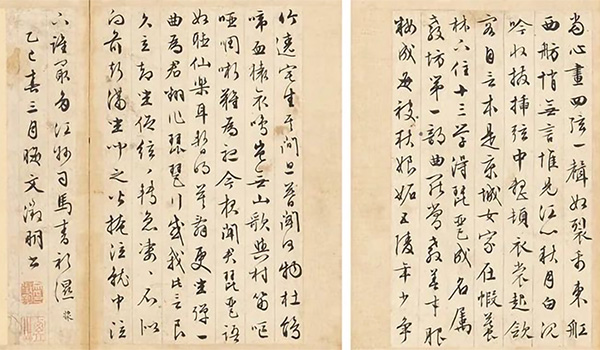 當心畫四弦一聲如裂帛東舡
西舫悄無言惟見江心秋月白沉
吟收撥插弦中整頓衣裳起斂
容自言本是京城女家在蝦蟇
住十三學得琵琶成名屬
教坊第一部曲罷嘗教善才服
妝成每被秋娘妬五陵年少爭
竹遶宅生其間旦暮聞何物杜鵑
啼血猿哀鳴豈無山歌與村笛嘔
啞嘲哳難為聽今夜聞君琵琶語
如聽仙樂耳暫明莫辭更坐彈一
曲為君翻作琵琶行感我此言良
久立卻坐促弦弦轉急凄凄不似
向前聲滿坐聞之皆掩泣就中泣
下誰最多江州司馬青衫濕
乙巳春三月既文徵明書